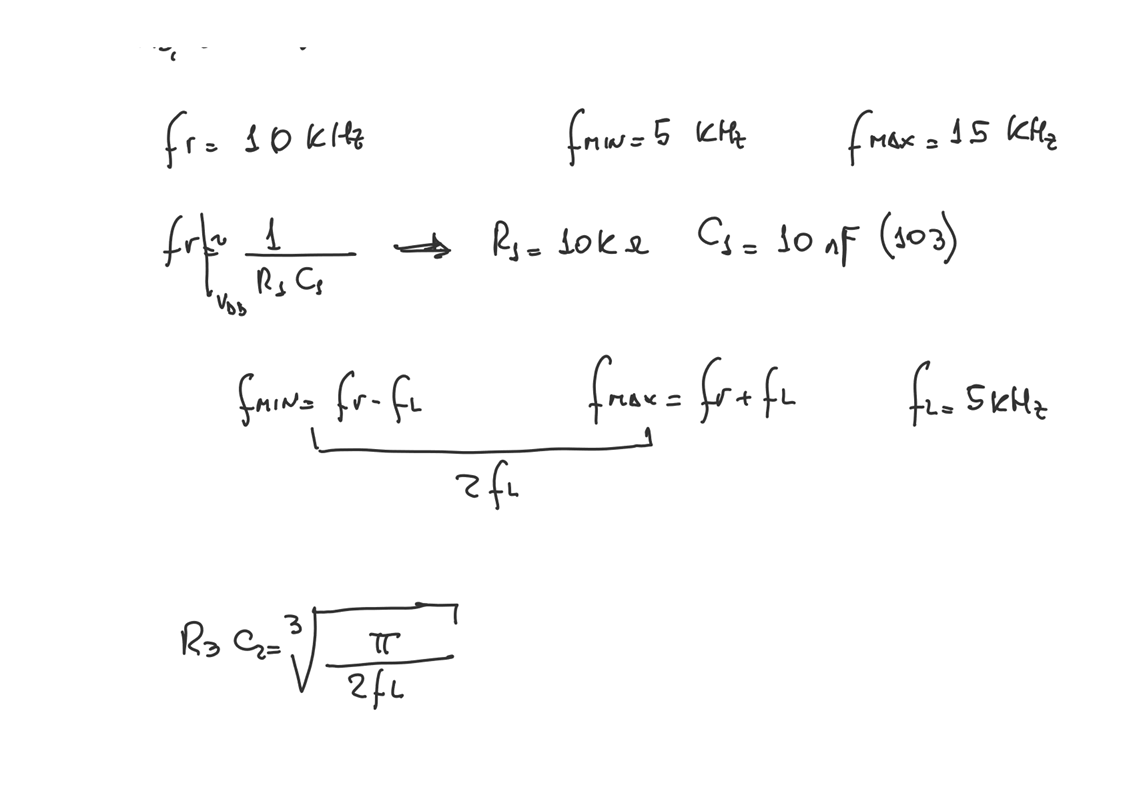 fr = 10 KHz fMIN = 5 KHz fMAX = 15 KHz
fr|VDD ≈ 1 / R1 C1 ⇒ R1 = 10K Ω C1 = 10 nF (103)
fMIN = fr - fL fMAX = fr + fL fL = 5 KHz
2 fL
R3 C2 = ∛(π / 2fL)